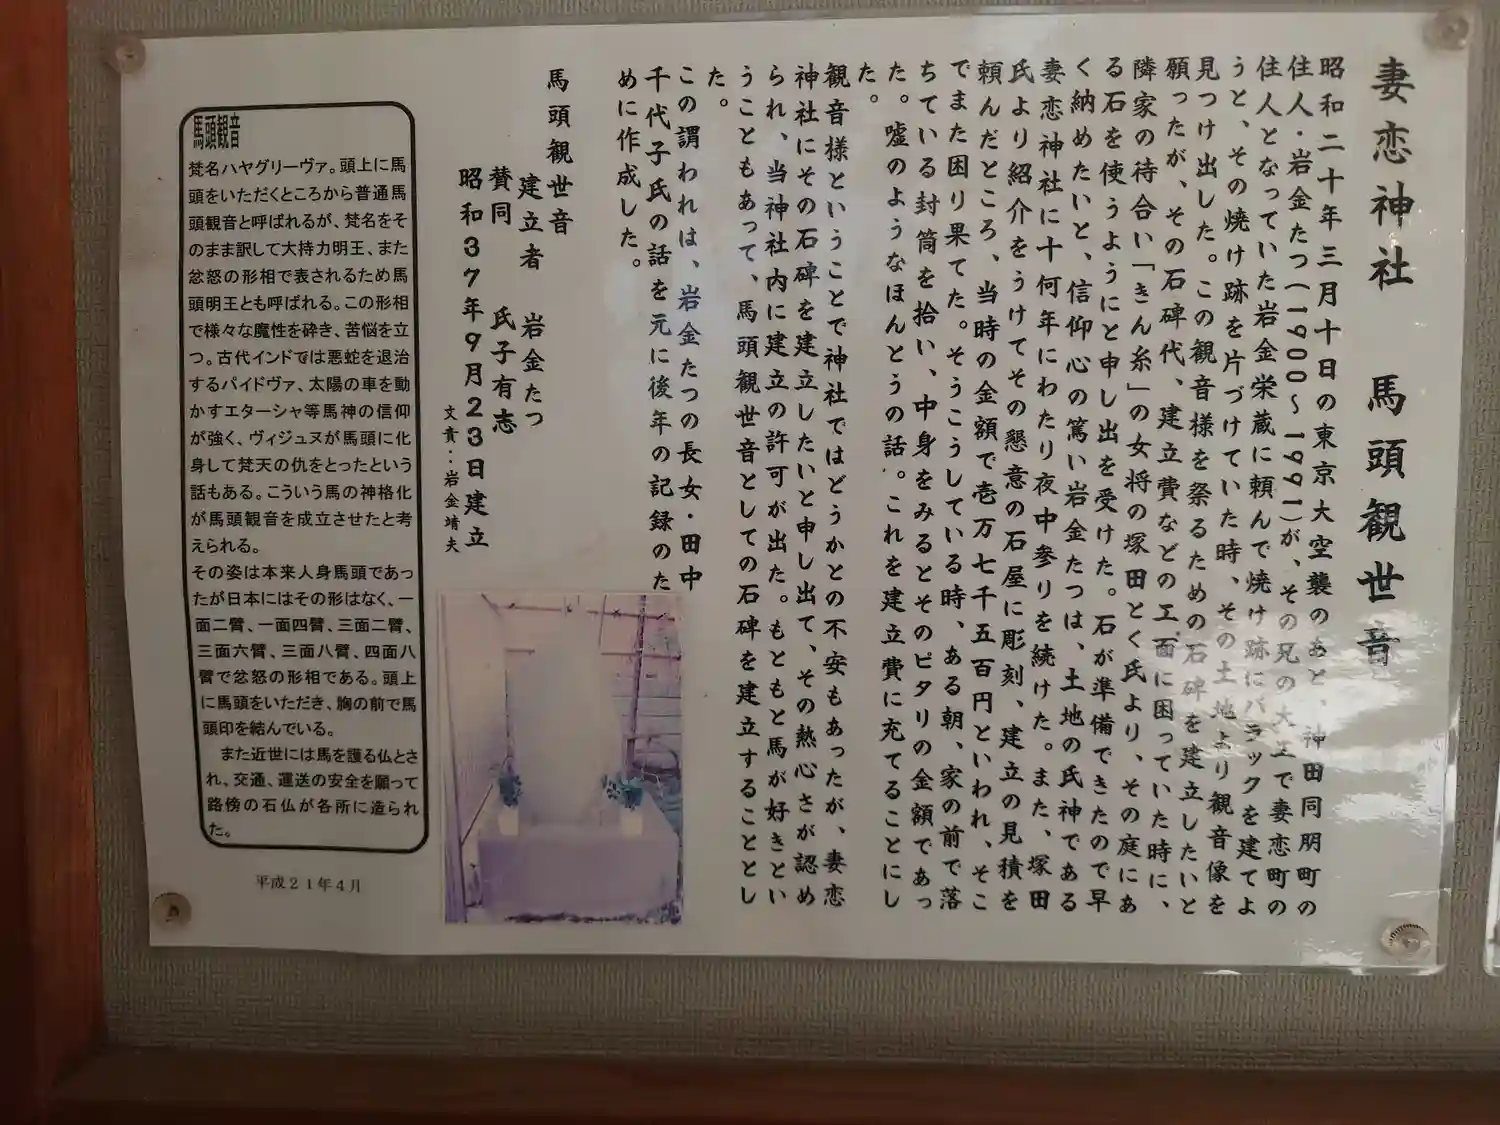 妻恋神社 馬頭観世音
昭和二十年三月十日の東京大空襲のあと、神田同朋町の
住人・岩金たつ(1900〜1991)が、その兄の大工で妻恋町の
住人となっていた岩金栄蔵に頼んで焼け跡にバラックを建てよ
うと、その焼け跡を片づけていた時、その土地より観音像を
見つけ出した。この観音様を祭るための石碑を建立したいと
願ったが、その石碑代、建立費などの工面に困っていた時に、
隣家の待合い「きん糸」の女将の塚田とく氏より、その庭にあ
る石を使うようにと申し出を受けた。石が準備できたので早
く納めたいと、信仰心の篤い岩金たつは、土地の氏神である
妻恋神社に十何年にわたり夜中参りを続けた。また、塚田
氏より紹介をうけてその懇意の石屋に彫刻、建立の見積を
頼んだところ、当時の金額で壱万七千五百円といわれ、そこ
でまた困り果てた。そうこうしている時、ある朝、家の前で落
ちている封筒を拾い、中身をみるとそのピタリの金額であっ
た。嘘のようなほんとうの話。これを建立費に充てることにし
た。
観音様ということで神社ではどうかとの不安もあったが、妻恋
神社にその石碑を建立したいと申し出て、その熱心さが認め
られ、当神社内に建立の許可が出た。もともと馬が好きとい
うこともあって、馬頭観世音としての石碑を建立することとし
た。
この謂われは、岩金たつの長女・田中
千代子氏の話を元に後年の記録のた
めに作成した。
馬頭観世音
建立者 岩金たつ
賛同 氏子有志
昭和37年9月23日建立
文責：岩金靖夫
馬頭観音
梵名ハヤグリーヴァ。頭上に馬
頭をいただくところから普通馬
頭観音と呼ばれるが、梵名をそ
のまま訳して大持力明王、また
忿怒の形相で表されるため馬
頭明王とも呼ばれる。この形相
で様々な魔性を砕き、苦悩を立
つ。古代インドでは悪蛇を退治
するパイドヴァ、太陽の車を動
かすエターシャ等馬神の信仰
が強く、ヴィジュヌが馬頭に化
身して梵天の仇をとったという
話もある。こういう馬の神格化
が馬頭観音を成立させたと考
えられる。
その姿は本来人身馬頭であっ
たが日本にはその形はなく、一
面二臂、一面四臂、三面二臂、
三面六臂、三面八臂、四面八
臂で忿怒の形相である。頭上
に馬頭をいただき、胸の前で馬
頭印を結んでいる。
また近世には馬を護る仏とさ
れ、交通、運送の安全を願って
路傍の石仏が各所に造られ
た。
平成21年4月